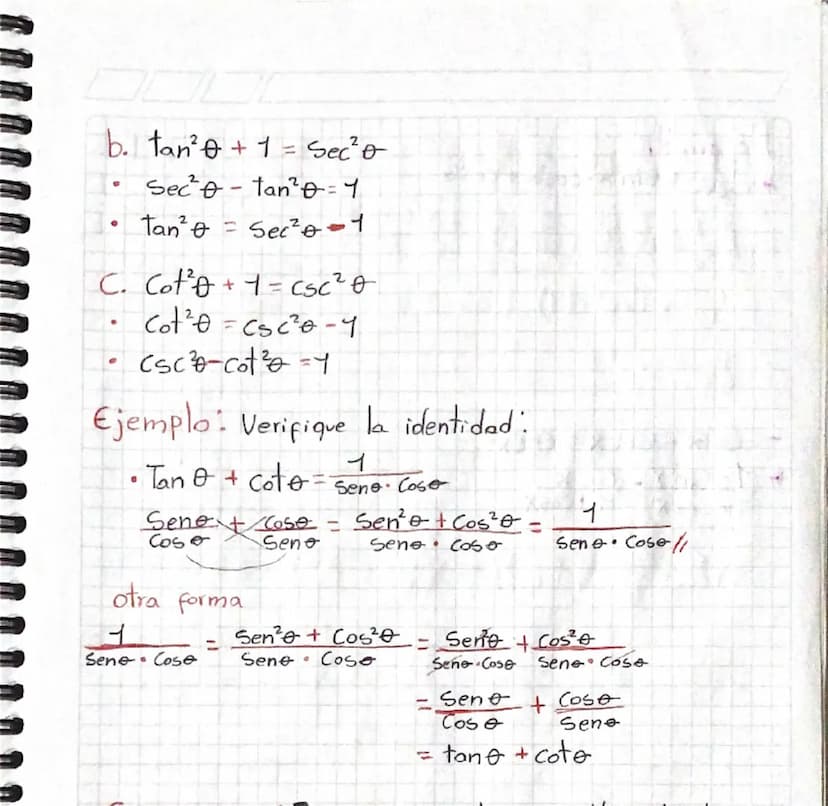 b. tan²θ + 1 = Sec²θ
• Sec²θ - tan²θ = 1
• tan²θ = Sec²θ - 1
C. Cot²θ + 1 = CSC²θ
• Cot²θ = CSC²θ - 1
• CSC²θ - cot²θ = 1
Ejemplo: Verifique la identidad:
• Tan θ + cot θ = 1 / Sen θ · Cos θ
Sen θ / Cos θ + Cos θ / Sen θ = Sen²θ + Cos²θ / Sen θ · Cos θ = 1 / Sen θ · Cos θ //
otra forma
1 / Sen θ · Cos θ = Sen²θ + Cos²θ / Sen θ · Cos θ = Sen²θ / Sen θ · Cos θ + Cos²θ / Sen θ · Cos θ
= Sen θ / Cos θ + Cos θ / Sen θ
= tan θ + cot θ